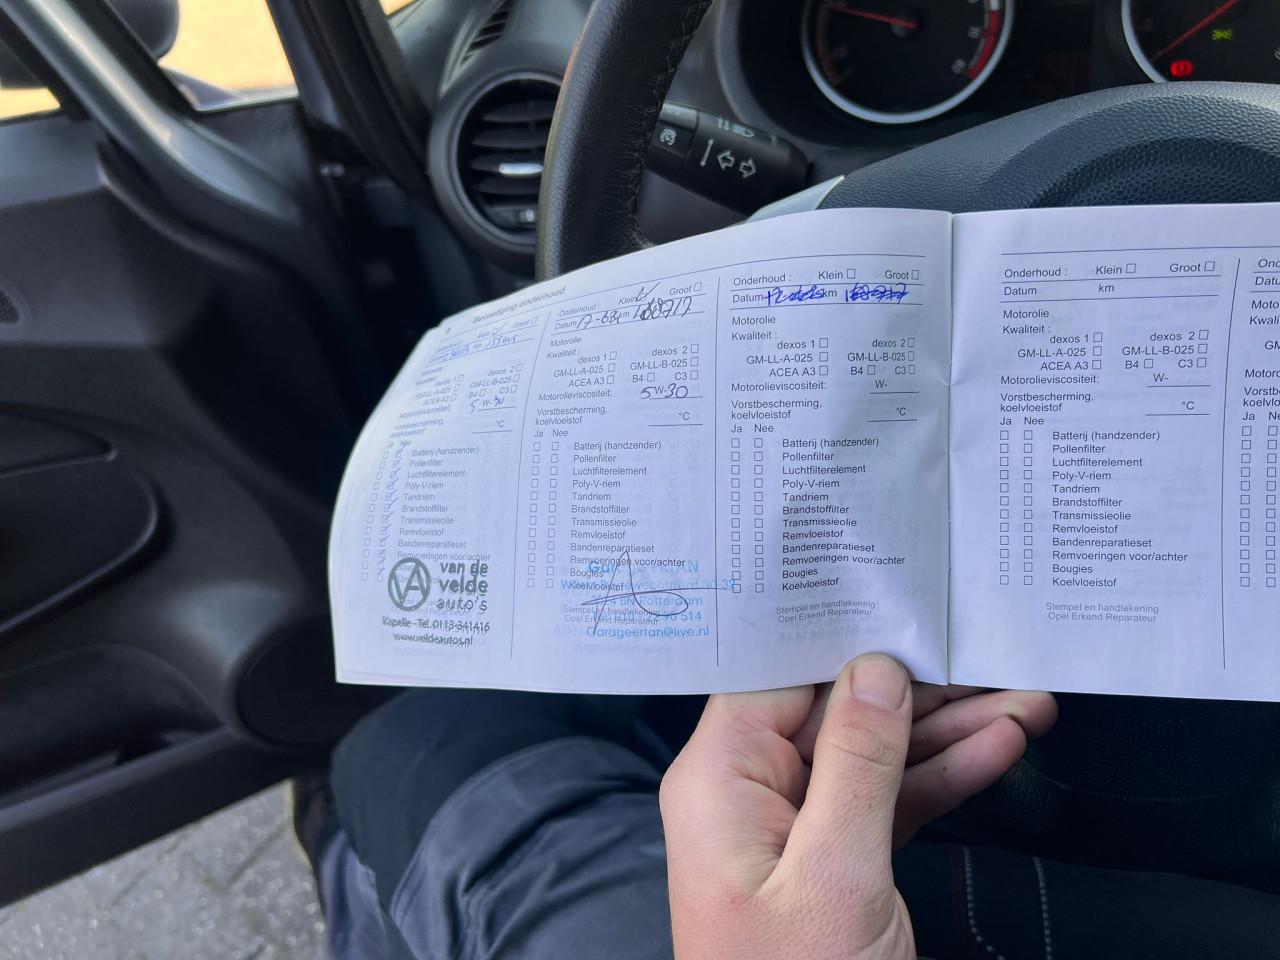 Bevestiging onderhoud
Klein Groot
Kwaliteit:
dexos 1 dexos 2
GM-LL-A-025 GM-LL-B-025
ACEA A3 B4 C3
Motorolieviscositeit: 5 W-30
Vorstbescherming,
koelvloeistof °C
Ja Nee
Batterij (handzender)
Pollenfilter
Luchtfilterelement
Poly-V-riem
Tandriem
Brandstoffilter
Transmissieolie
Remvloeistof
Bandenreparatieset
Remvoeringen voor/achter
VA van de
velde
auto's
Kapelle - Tel. 0113-341416
www.veldeautos.nl
Onderhoud : Klein Groot
Datum 17-08 km
Motorolie
Kwaliteit :
dexos 1 dexos 2
GM-LL-A-025 GM-LL-B-025
ACEA A3 B4 C3
Motorolieviscositeit: 5W-30
Vorstbescherming,
koelvloeistof °C
Ja Nee
Batterij (handzender)
Pollenfilter
Luchtfilterelement
Poly-V-riem
Tandriem
Brandstoffilter
Transmissieolie
Remvloeistof
Bandenreparatieset
Remvoeringen voor/achter
Bougies
Koelvloeistof
Rotterdam
Stempel en handtekening
Opel Erkend Reparateur
514
Garageertan@live.nl
Onderhoud : Klein Groot
Datum km
Motorolie
Kwaliteit :
dexos 1 dexos 2
GM-LL-A-025 GM-LL-B-025
ACEA A3 B4 C3
Motorolieviscositeit: W-
Vorstbescherming,
koelvloeistof °C
Ja Nee
Batterij (handzender)
Pollenfilter
Luchtfilterelement
Poly-V-riem
Tandriem
Brandstoffilter
Transmissieolie
Remvloeistof
Bandenreparatieset
Remvoeringen voor/achter
Bougies
Koelvloeistof
Stempel en handtekening
Opel Erkend Reparateur
Onderhoud : Klein Groot
Datum km
Motorolie
Kwaliteit :
dexos 1 dexos 2
GM-LL-A-025 GM-LL-B-025
ACEA A3 B4 C3
Motorolieviscositeit: W-
Vorstbescherming,
koelvloeistof °C
Ja Nee
Batterij (handzender)
Pollenfilter
Luchtfilterelement
Poly-V-riem
Tandriem
Brandstoffilter
Transmissieolie
Remvloeistof
Bandenreparatieset
Remvoeringen voor/achter
Bougies
Koelvloeistof
Stempel en handtekening
Opel Erkend Reparateur